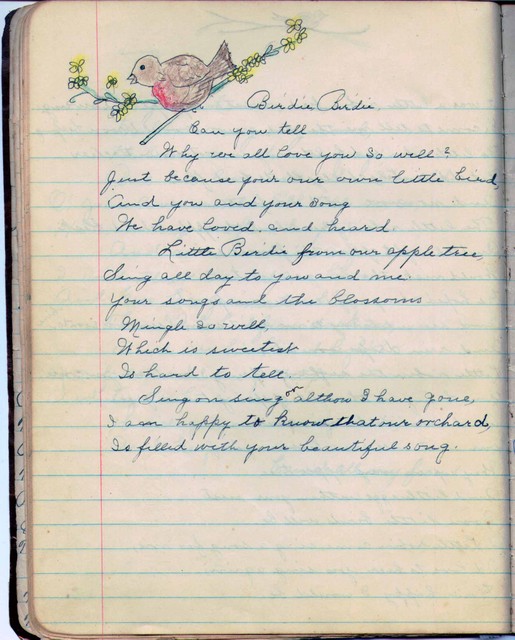 Birdie, Birdie,
Can you tell
Why we all love you so well?
Just because your our own little bird,
And you and your song
We have loved and heard.
Little Birdie from our apple tree,
Sing all day to you and me
Your songs and the blossoms
Mingle so well,
Which is sweetest
Is hard to tell.
Sing on sing on althow I have gone,
I am happy to know that our orchard,
Is filled with your beautiful song.